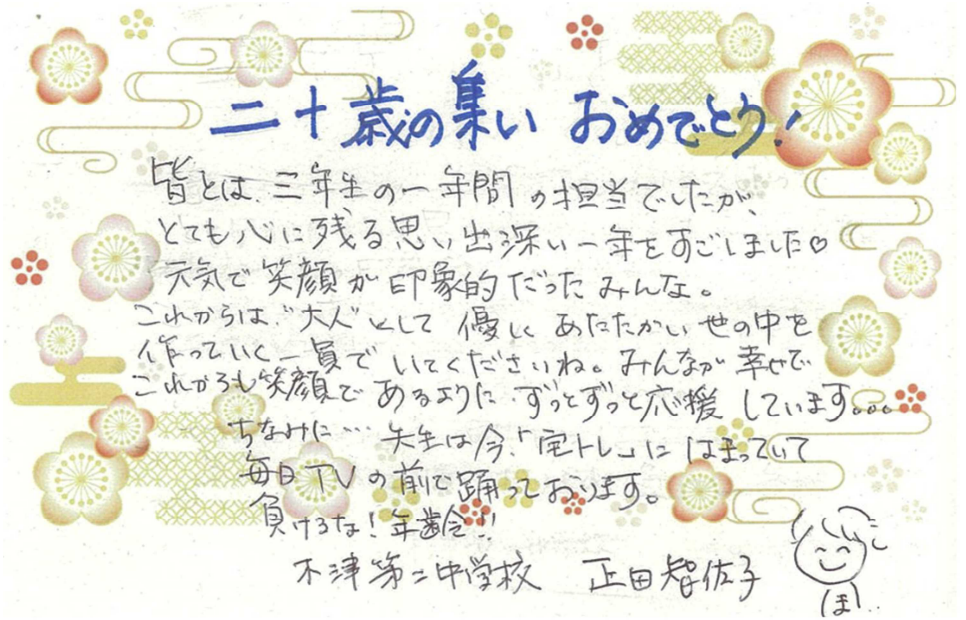 二十歳の集い おめでとう!
皆とは、三年生の一年間の担当でしたが、
とても心に残る思い出深い一年をすごしました♡
元気で笑顔が印象的だったみんな。
これからは、"大人"として 優しく あたたかい世の中を
作っていく一員でいてくださいね。みんなが幸せで
これからも笑顔であるように、ずっとずっと応援しています。。。
ちなみに… 先生は今、「宅トレ」にはまっていて
毎日TVの前で踊っております。
負けるな!年齢に!!
木津第二中学校 正田智佐子
ほ..